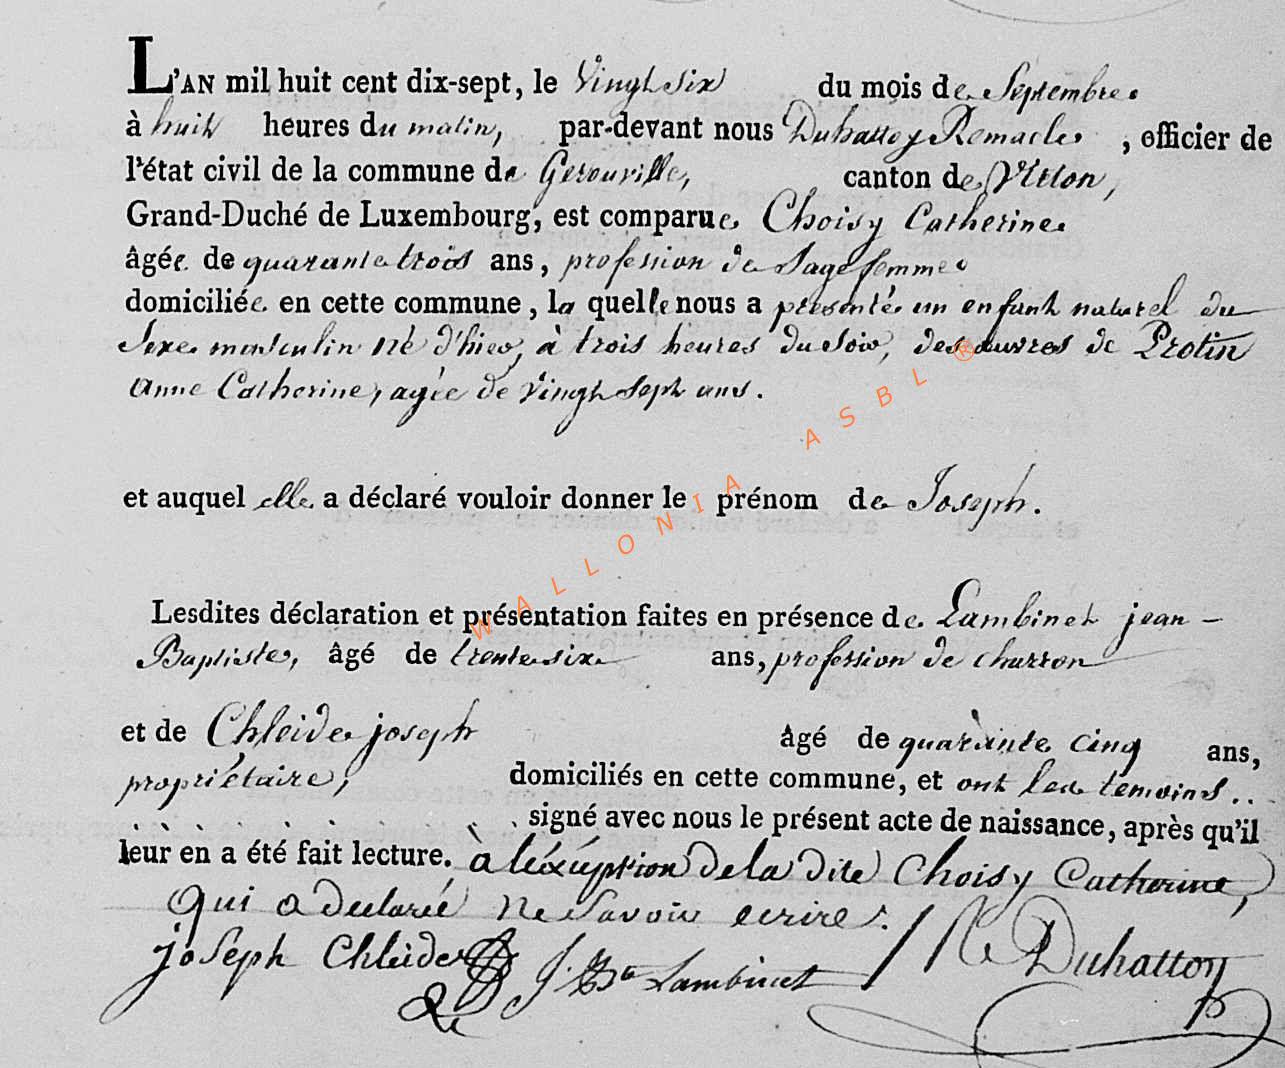 L'AN mil huit cent dix-sept, le Vingt six du mois de Septembre.
à huit heures du matin, par-devant nous Duhattoy Remacle, officier de
l'état civil de la commune de Gerouville, canton de Virton,
Grand-Duché de Luxembourg, est comparue Choisy Catherine
âgée de quarante trois ans, profession de Sage femme
domiciliée en cette commune, la quelle nous a presenté un enfant naturel du
Sexe masculin né d'hier, à trois heures du soir, des œuvres de Protin
Anne Catherine, agée de Vingt Sept ans.
et auquel elle a déclaré vouloir donner le prénom de Joseph.
Lesdites déclaration et présentation faites en présence de Lambinet jean-
Baptiste, âgé de trente six ans, profession de charron
et de Chleide joseph âgé de quarante cinq ans,
propriétaire, domiciliés en cette commune, et ont les temoins..
signé avec nous le présent acte de naissance, après qu'il
leur en a été fait lecture. à l'éxéption de la dite Choisy Catherine,
qui a declaré ne Savoir ecrire.
joseph Chleide J. Bte Lambinet R Duhattoy
WALLONIA ASBL ®